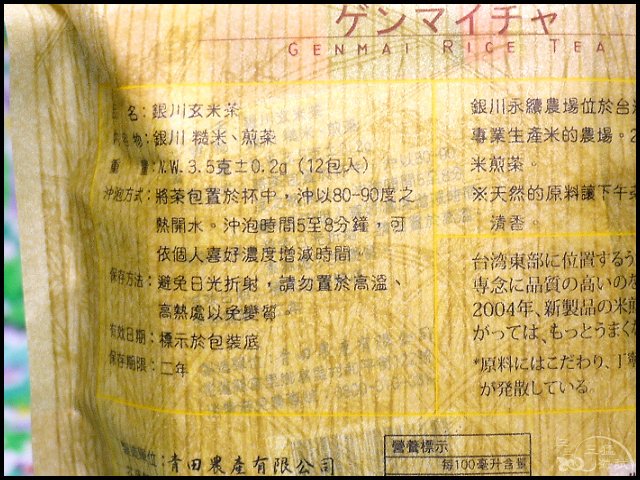 ゲンマイチャ
GENMAI RICE TEA
名：銀川玄米茶
物：銀川 糙米、煎茶
重 量：N.W. 3.5克±0.2g (12包入)
沖泡方式：將茶包置於杯中，沖以80-90度之
熱開水。沖泡時間5至8分鐘，可
依個人喜好濃度增減時間
保存方法：避免日光折射，請勿置於高溫、
高熱處以免變質
有效日期：標示於包裝底
保存期限：二年
銀川永續農場位於台
專業生產米的農場。2
米煎茶。
※天然的原料讓下午茶
清香。
台湾東部に位置するう
専念に品質の高いのを
2004年、新製品の米
がっては、もっとうまく
*原料にはこだわり、丁
が発散している。
單位：青田農產有限公司
營養標示
每100毫升含量